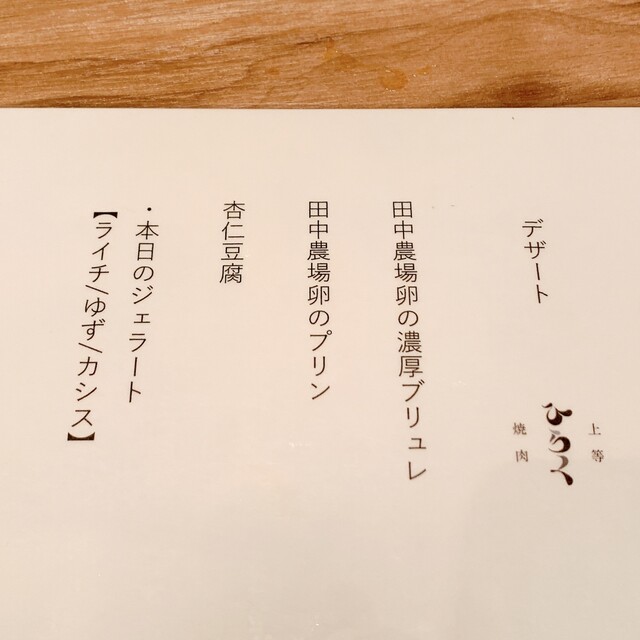 上等
焼肉
ひらく
デザート
田中農場卵の濃厚ブリュレ
田中農場卵のプリン
杏仁豆腐
・本日のジェラート
【ライチ/ゆず/カシス】